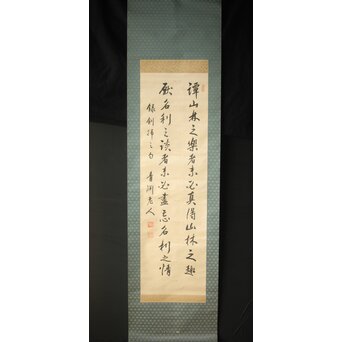 譚山林之樂者未必真得山林之趣
厭名利之談者未必盡忘名利之情
錄劍掃之句 青淵老人